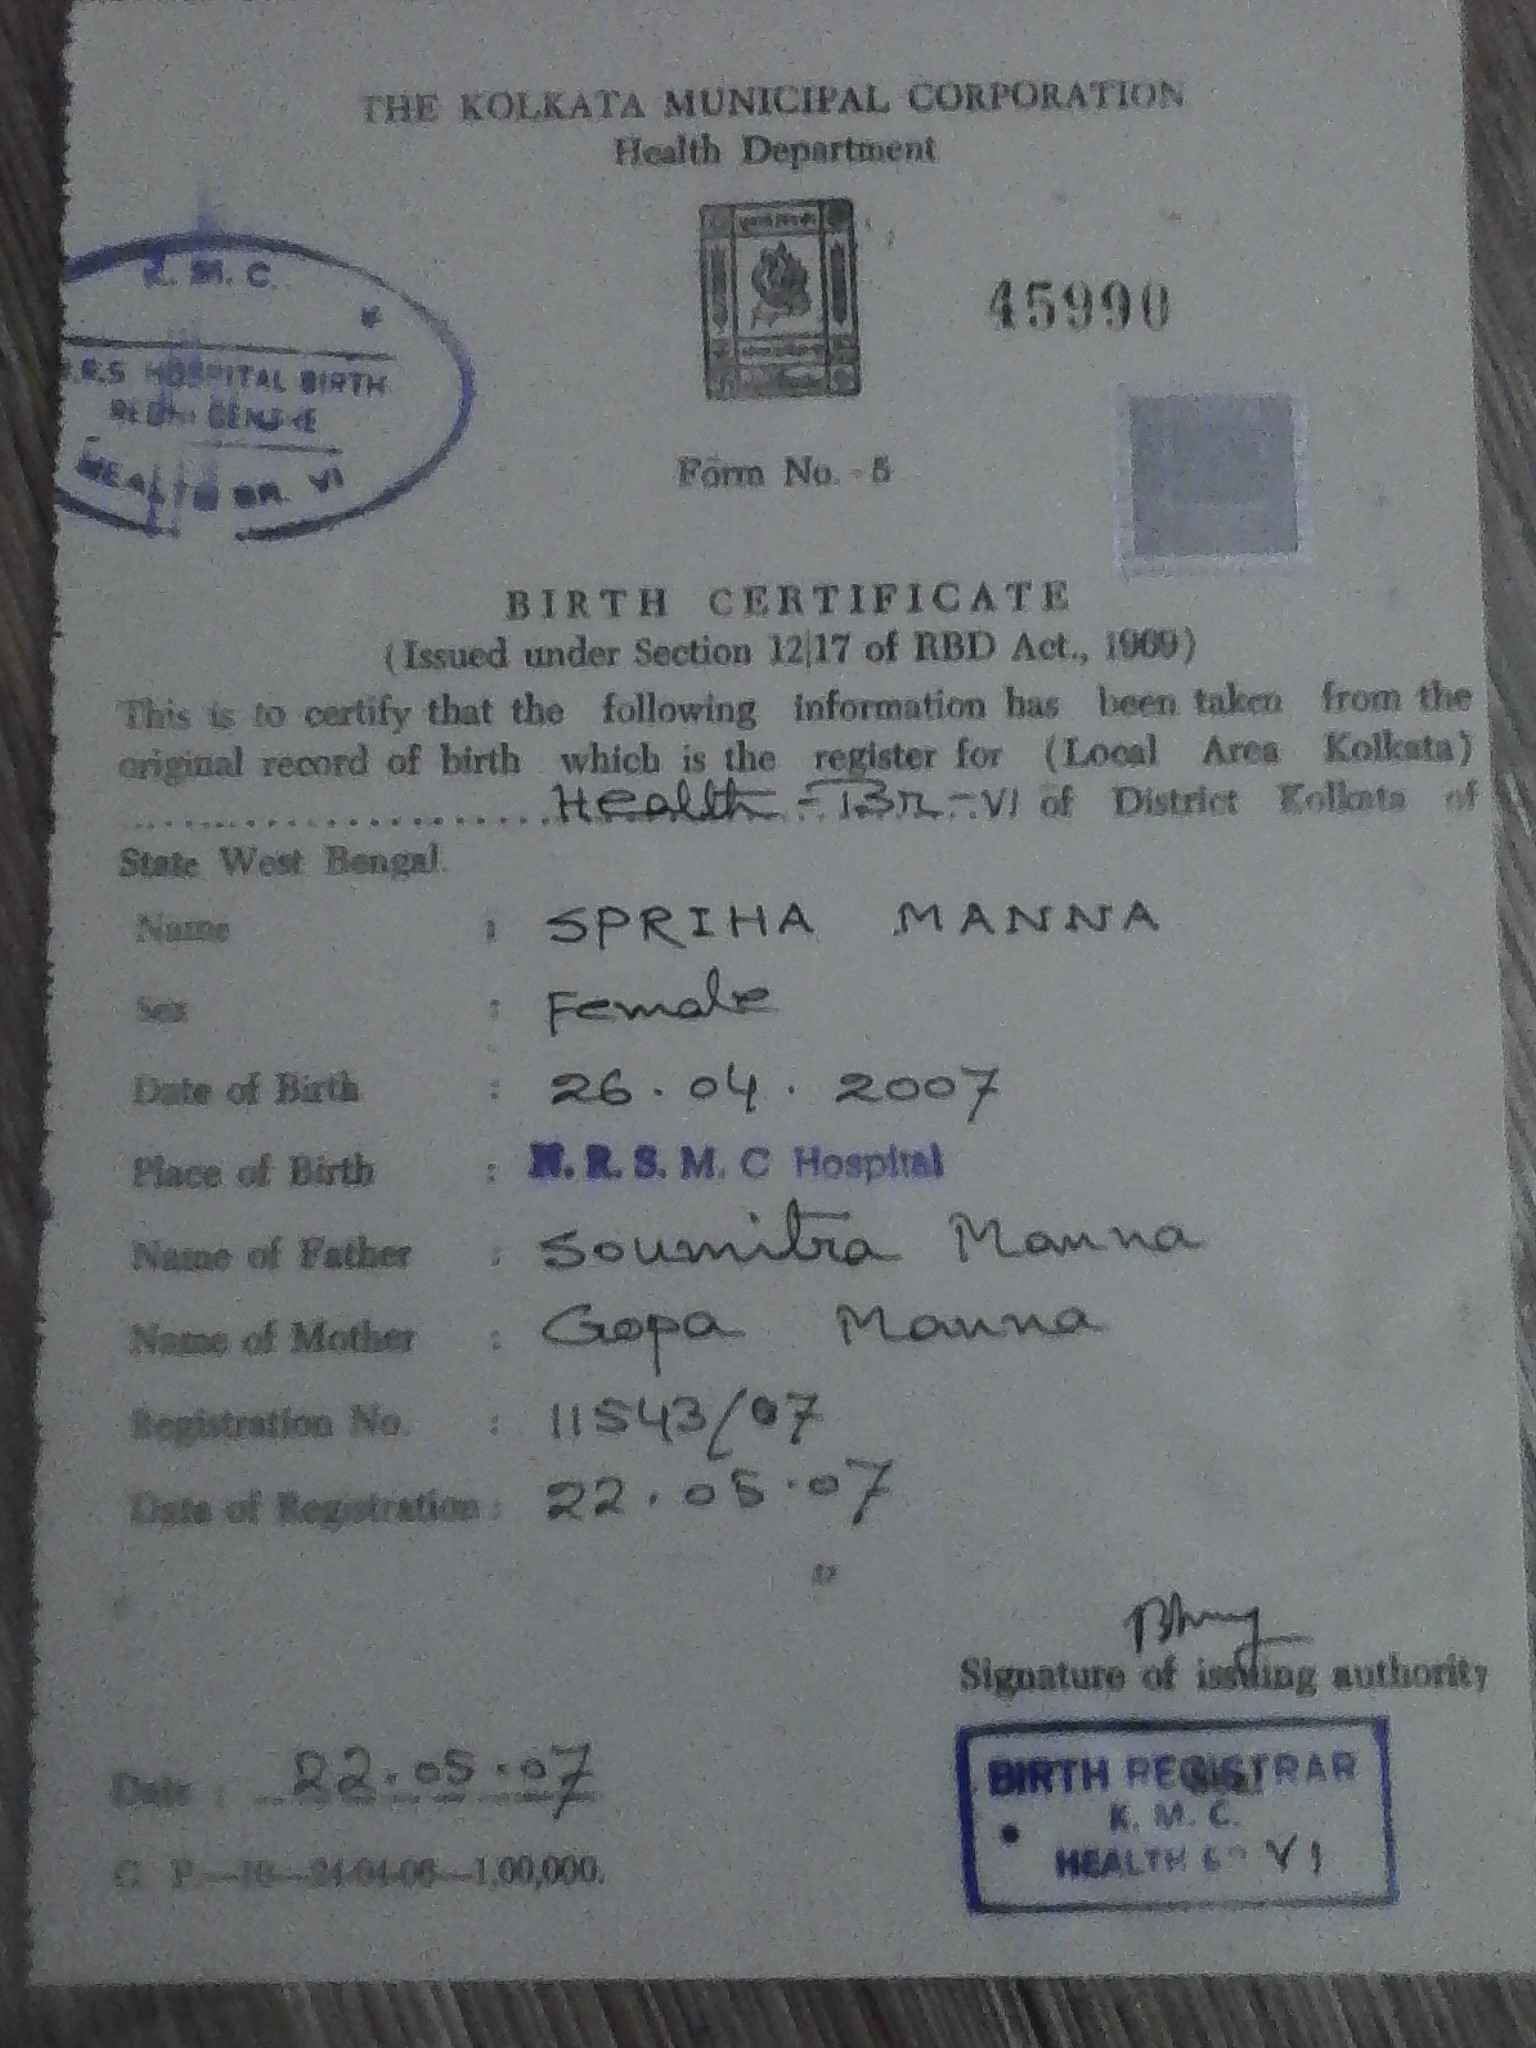 THE KOLKATA MUNICIPAL CORPORATION
Health Department
K. M. C.
45990
.R.S HOSPITAL BIRTH
HEALTH BR. VI
Form No. - 5
BIRTH CERTIFICATE
(Issued under Section 12|17 of RBD Act., 1969)
This is to certify that the following information has been taken from the
original record of birth which is the register for (Local Area Kolkata)
Health - Br - VI of District Kolkata of
State West Bengal.
Name : SPRIHA MANNA
Sex : Female
Date of Birth : 26.04.2007
Place of Birth : N.R.S.M.C Hospital
Name of Father : Soumitra Manna
Name of Mother : Gopa Manna
Registration No. : 11543/07
Date of Registration : 22.05.07
Signature of issuing authority
Date : 22.05.07
BIRTH REGISTRAR
K. M. C.
HEALTH VI
C. P.—10—24-04-06—1,00,000.